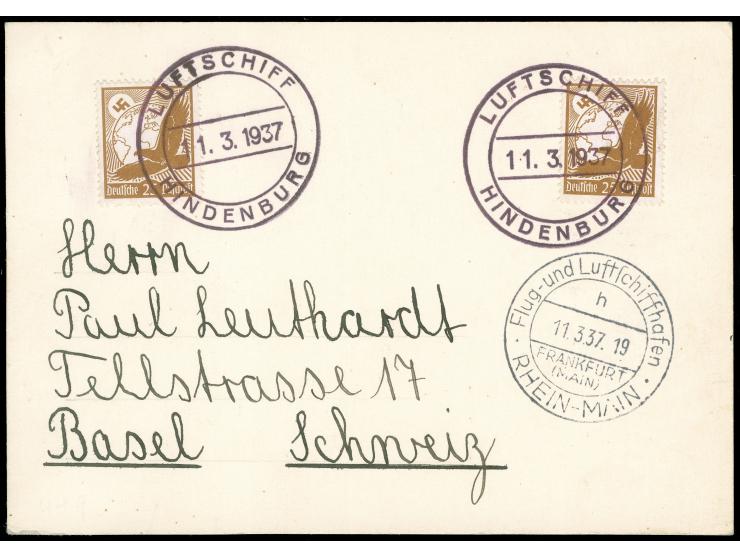 LUFTSCHIFF
11.3.1937
HINDENBURG
Deutsche 25 Luftpost
LUFTSCHIFF
11.3.1937
HINDENBURG
Deutsche 25
Herrn
Paul Leuthardt
Tellstrasse 17
Basel Schweiz
Flug- und Luftschiffhafen
h
11.3.37.19
FRANKFURT
(MAIN)
RHEIN-MAIN